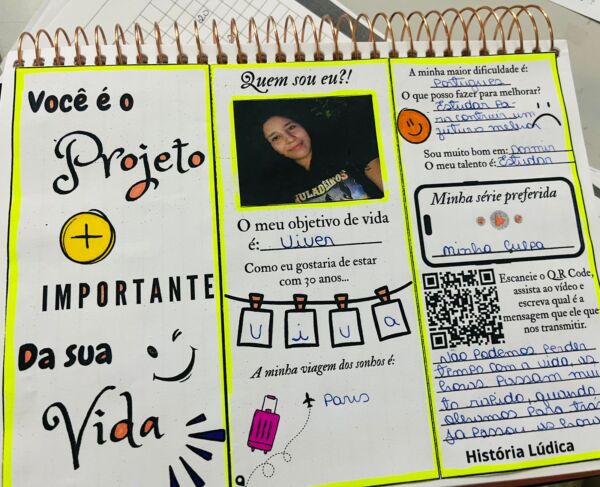 Você é o
Projeto
+
IMPORTANTE
Da sua
Vida
Quem sou eu?!
TULADEIROS
O meu objetivo de vida
é: Viver
Como eu gostaria de estar
com 30 anos...
V i v a
A minha viagem dos sonhos é:
Paris
A minha maior dificuldade é:
Portugues
O que posso fazer para melhorar?
Estudar Pa
ra construir um
futuro melhor
Sou muito bom em: Dormir
O meu talento é: Estudar
Minha série preferida
minha Culpa
Escaneie o QR Code,
assista ao vídeo e
escreva qual é a
mensagem que ele quer
nos transmitir.
Não Podemos Perder
tempo com a vida as
horas Passam mui
to rapido, quando
olharmos Para trás
Ja Passou as horas
História Lúdica